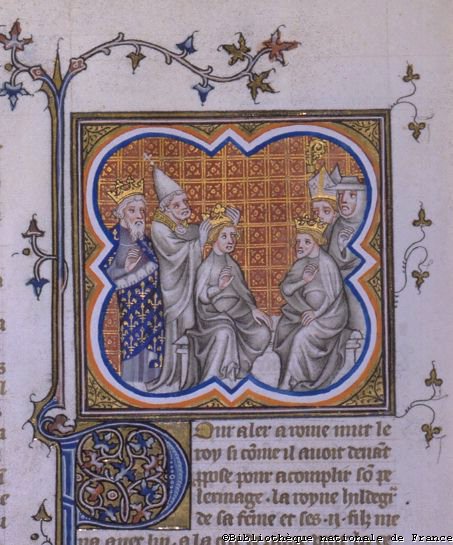 Pour aler a rome mut le
roy si come il avoit devant
pose pour acomplir son pe
lerinage. la royne hildegi
de sa feme et ses .ii. filz me
na avec lui. a la
©Bibliothèque nationale de France